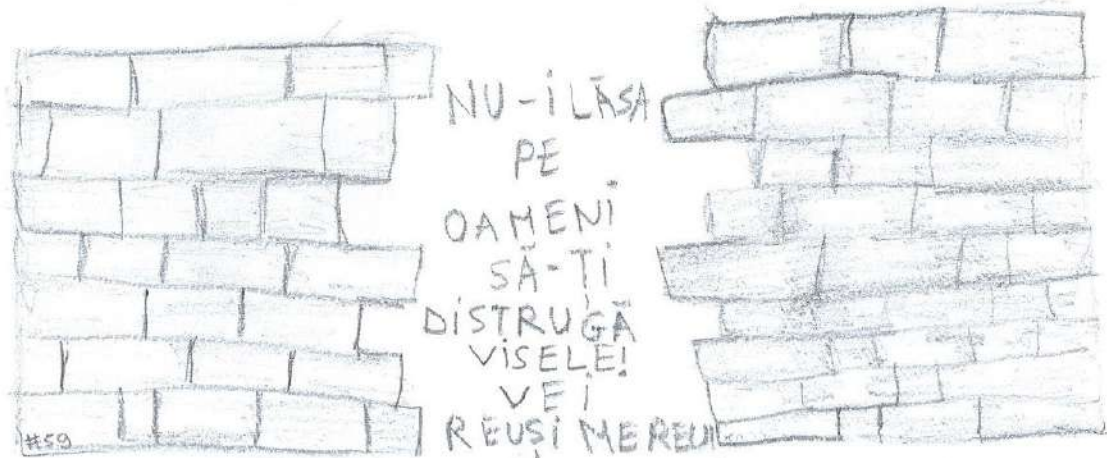 NU-I LĂSA
PE
OAMENI
SĂ-ȚI
DISTRUGĂ
VISELE!
VEI
REUȘI MEREU
#59